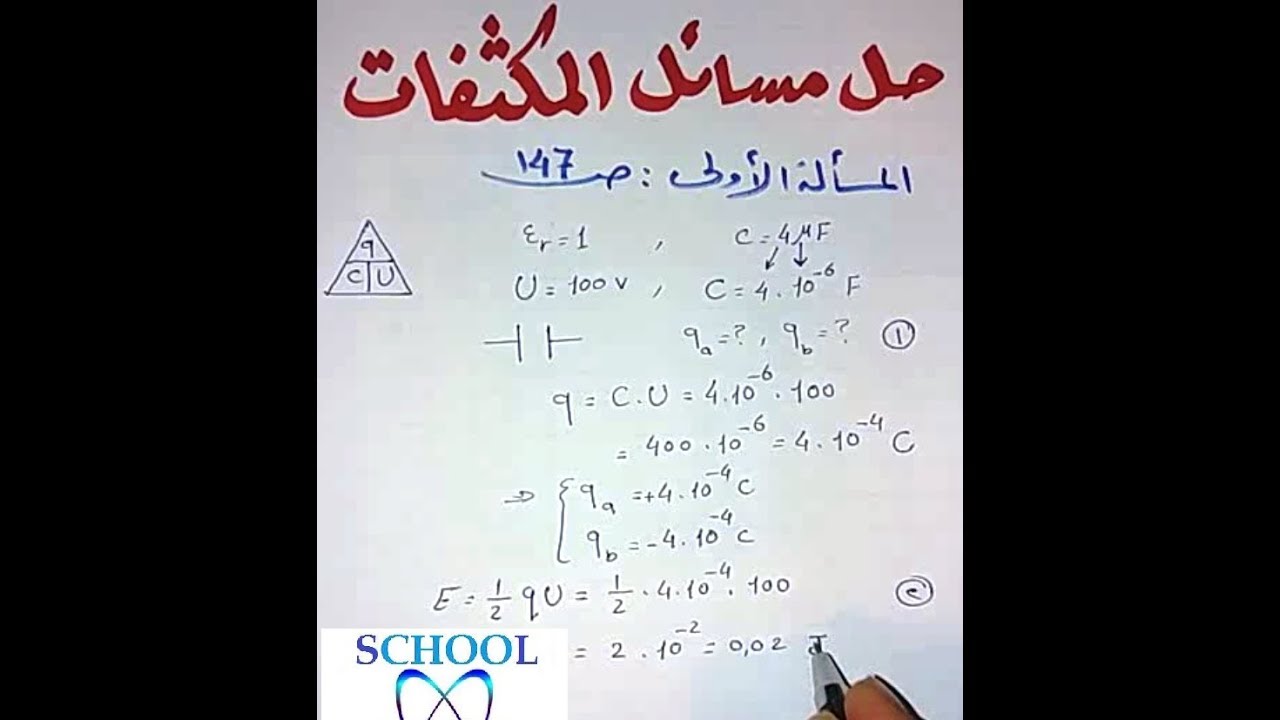 حل مسائل المكثفات
المسألة الأولى : ص 147
q
C U
εr = 1 , C = 4 μF
U = 100 V , C = 4 . 10⁻⁶ F
qa = ? , qb = ? ①
q = C . U = 4 . 10⁻⁶ . 100
= 400 . 10⁻⁶ = 4 . 10⁻⁴ C
⇒ { qa = +4 . 10⁻⁴ C
qb = -4 . 10⁻⁴ C
E = 1/2 qU = 1/2 . 4 . 10⁻⁴ . 100 ②
= 2 . 10⁻² = 0,02 J
SCHOOL